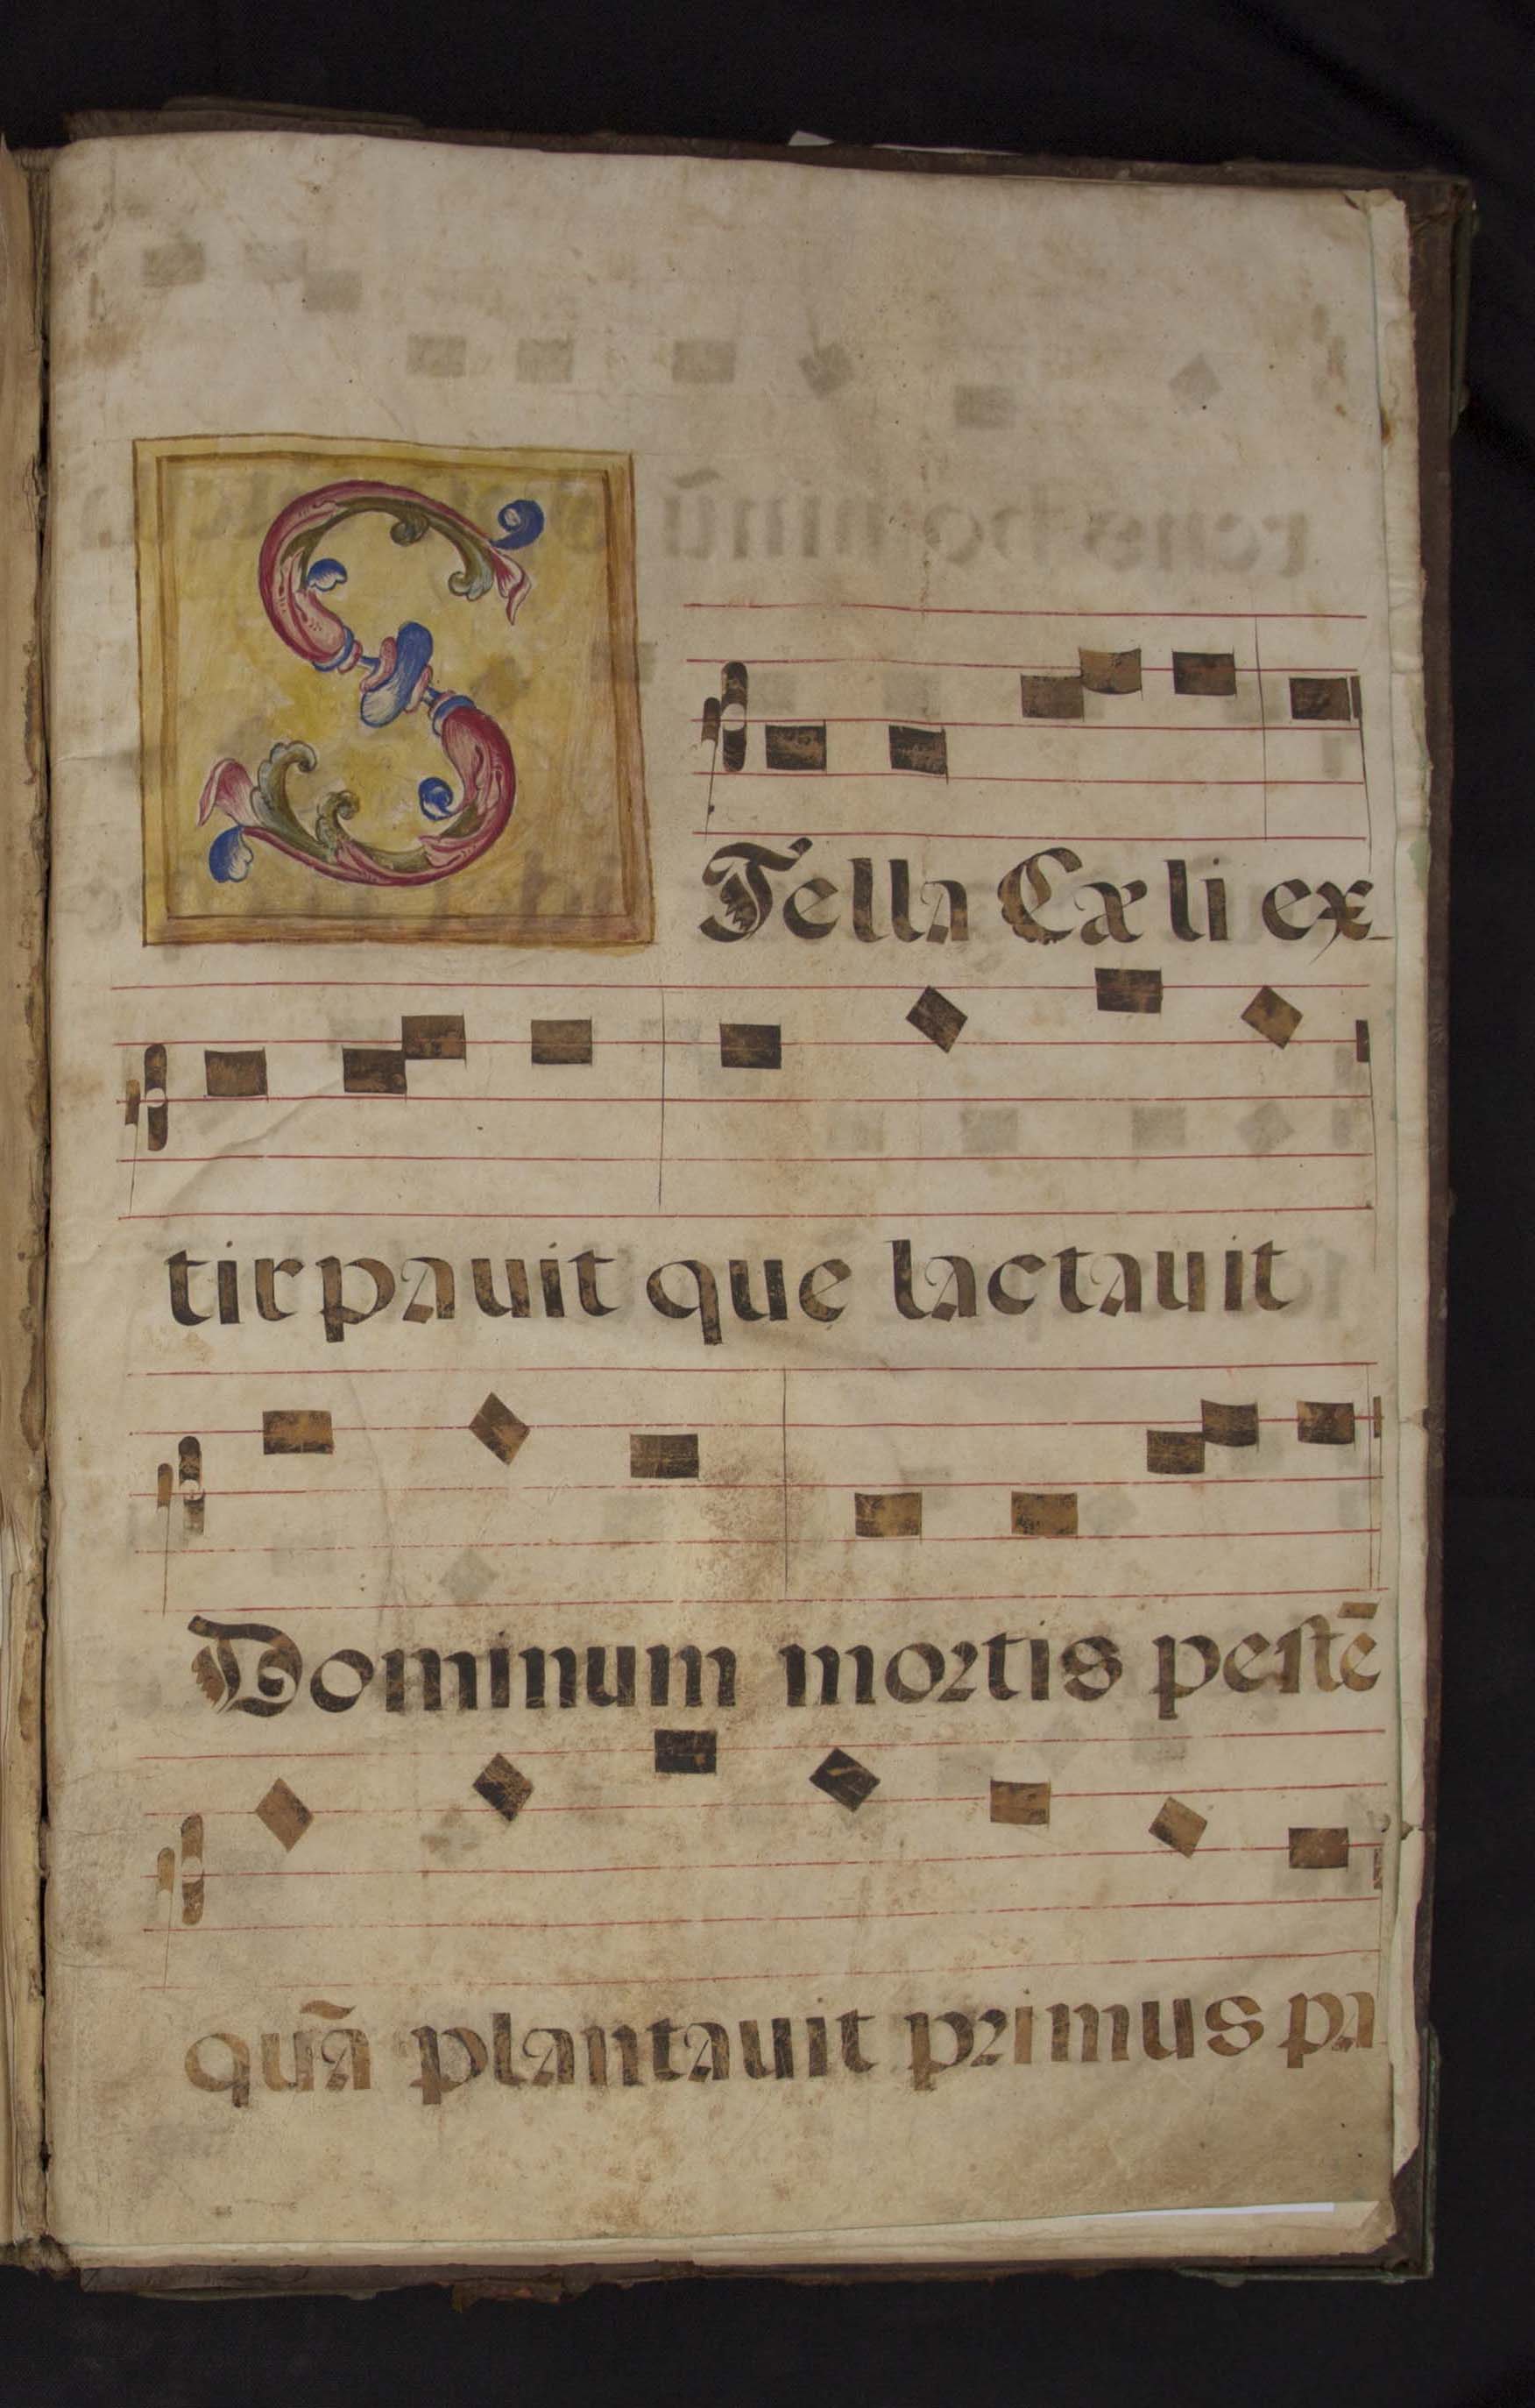 STella Cæli ex
tirpauit que lactauit
Dominum mortis pestē
quā plantauit primus pa